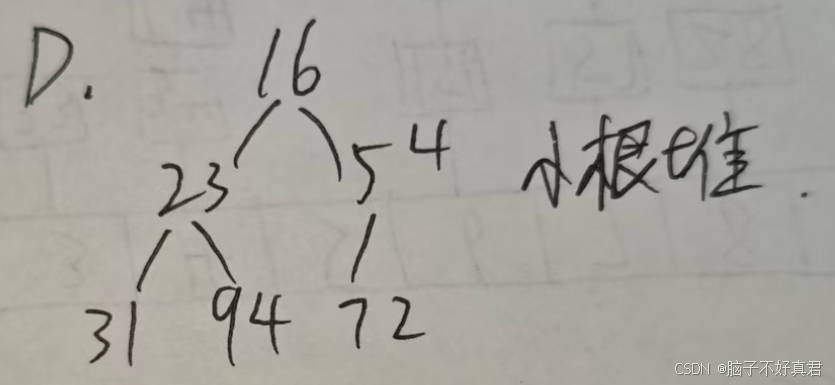 D.
16
23 54 小根堆.
31 94 72
CSDN @脑子不好真君